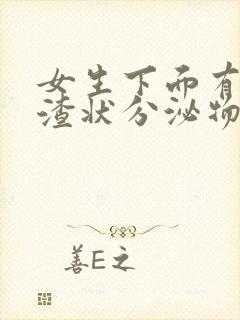 女生下而有
渣状分泌物
善E之